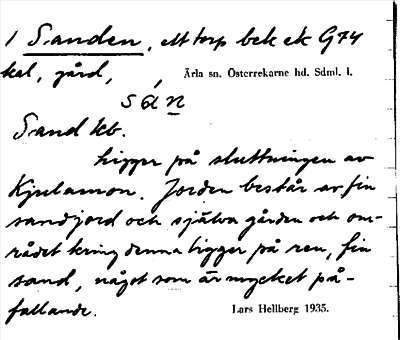 1 Sanden, ett torp bek ek G74
kal, gård, Ärla sn. Österrekarne hd. Sdml. l.
sán
Sand kb.
ligger på sluttningen av
Kjulamon. Jorden består av fin
sandjord och själva gården och om-
rådet kring denna ligger på ren, fin
sand, något som är mycket på-
fallande. Lars Hellberg 1935.